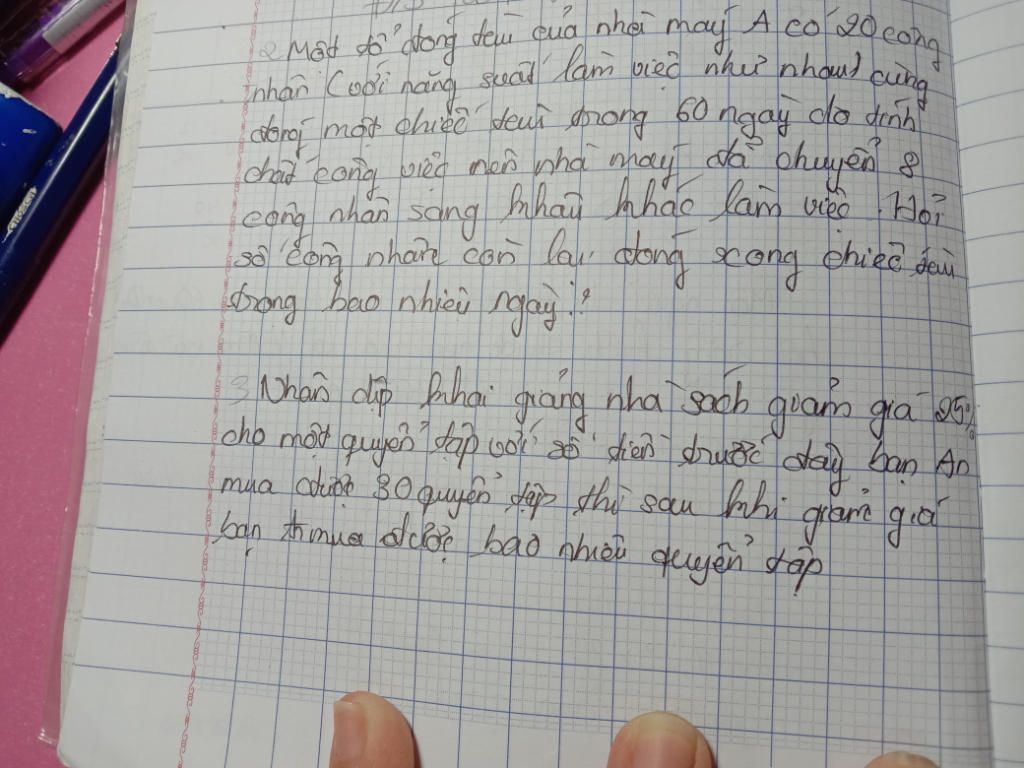 2 Một đổ đóng tàu của nhà máy A có 20 công
nhân (với năng suất làm việc như nhau) cùng
đóng một chiếc tàu trong 60 ngày do tính
chất công việc nên nhà máy đã chuyển 8
công nhân sang khâu khác làm việc. Hỏi
số công nhân còn lại đóng xong chiếc tàu
trong bao nhiêu ngày?
3 Nhân dịp khai giảng nhà sách giảm giá 25%
cho một quyển tập với số tiền trước đây bạn An
mua được 30 quyển tập thì sau khi giảm giá
bạn mua được bao nhiêu quyển tập